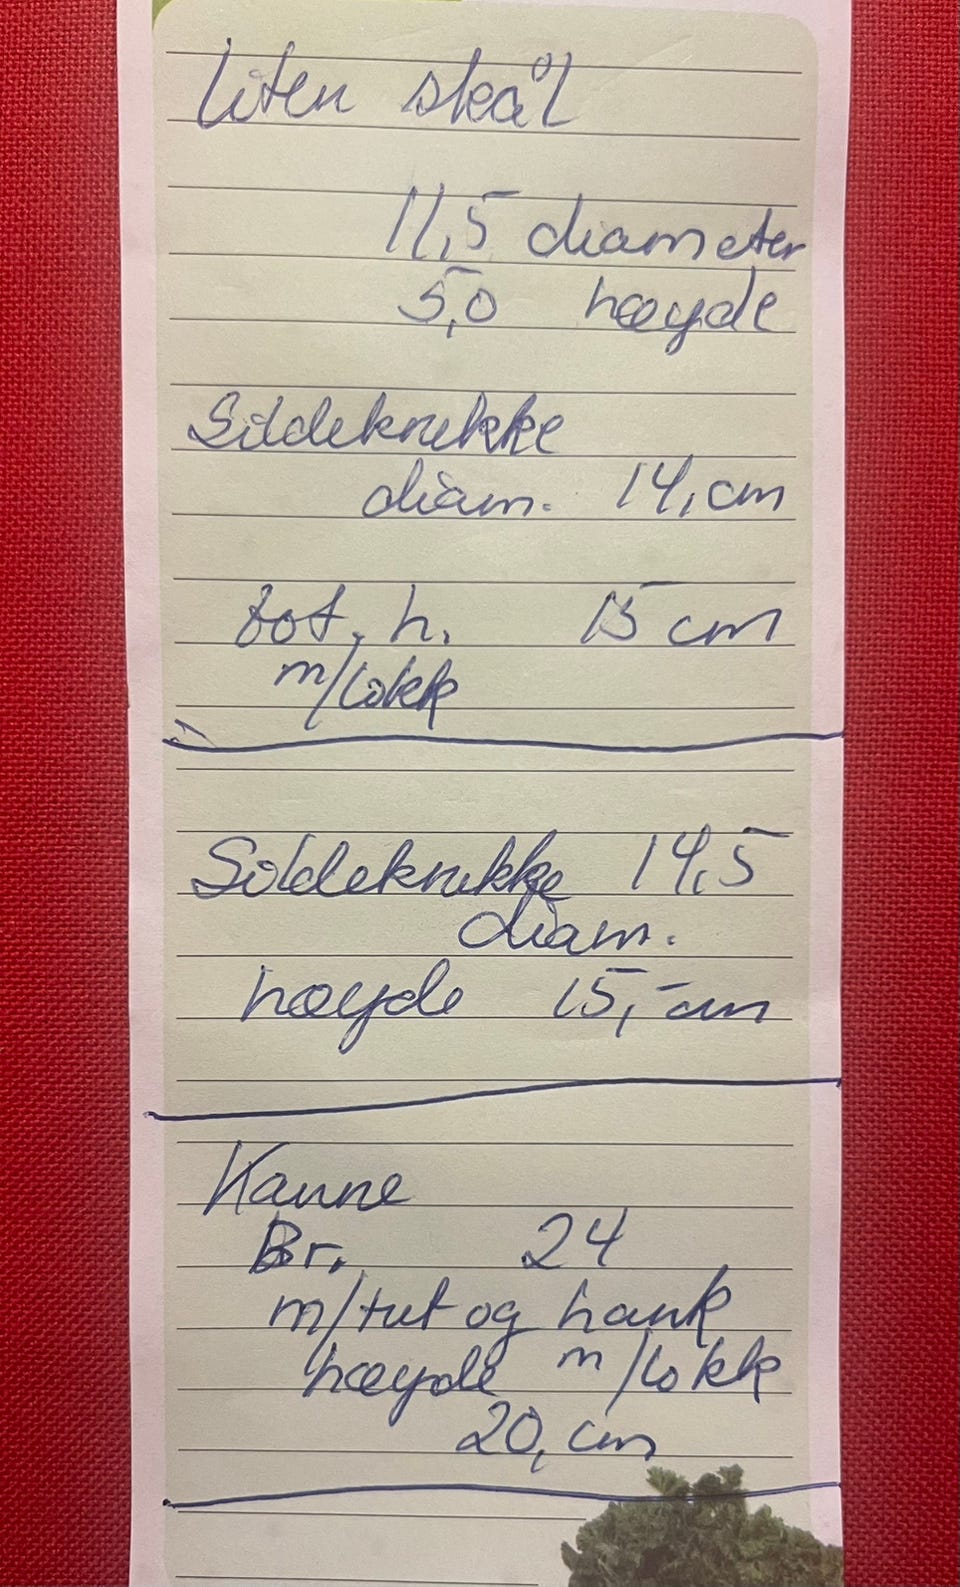 Liten skål
11,5 diameter
5,0 høyde
Sildekrukke
diam. 14, cm
tot. h. 15 cm
m/lokk
Sildekrukke 14,5
diam.
høyde 15,- cm
Kanne
Br. 24
m/tut og hank
høyde m/lokk
20, cm